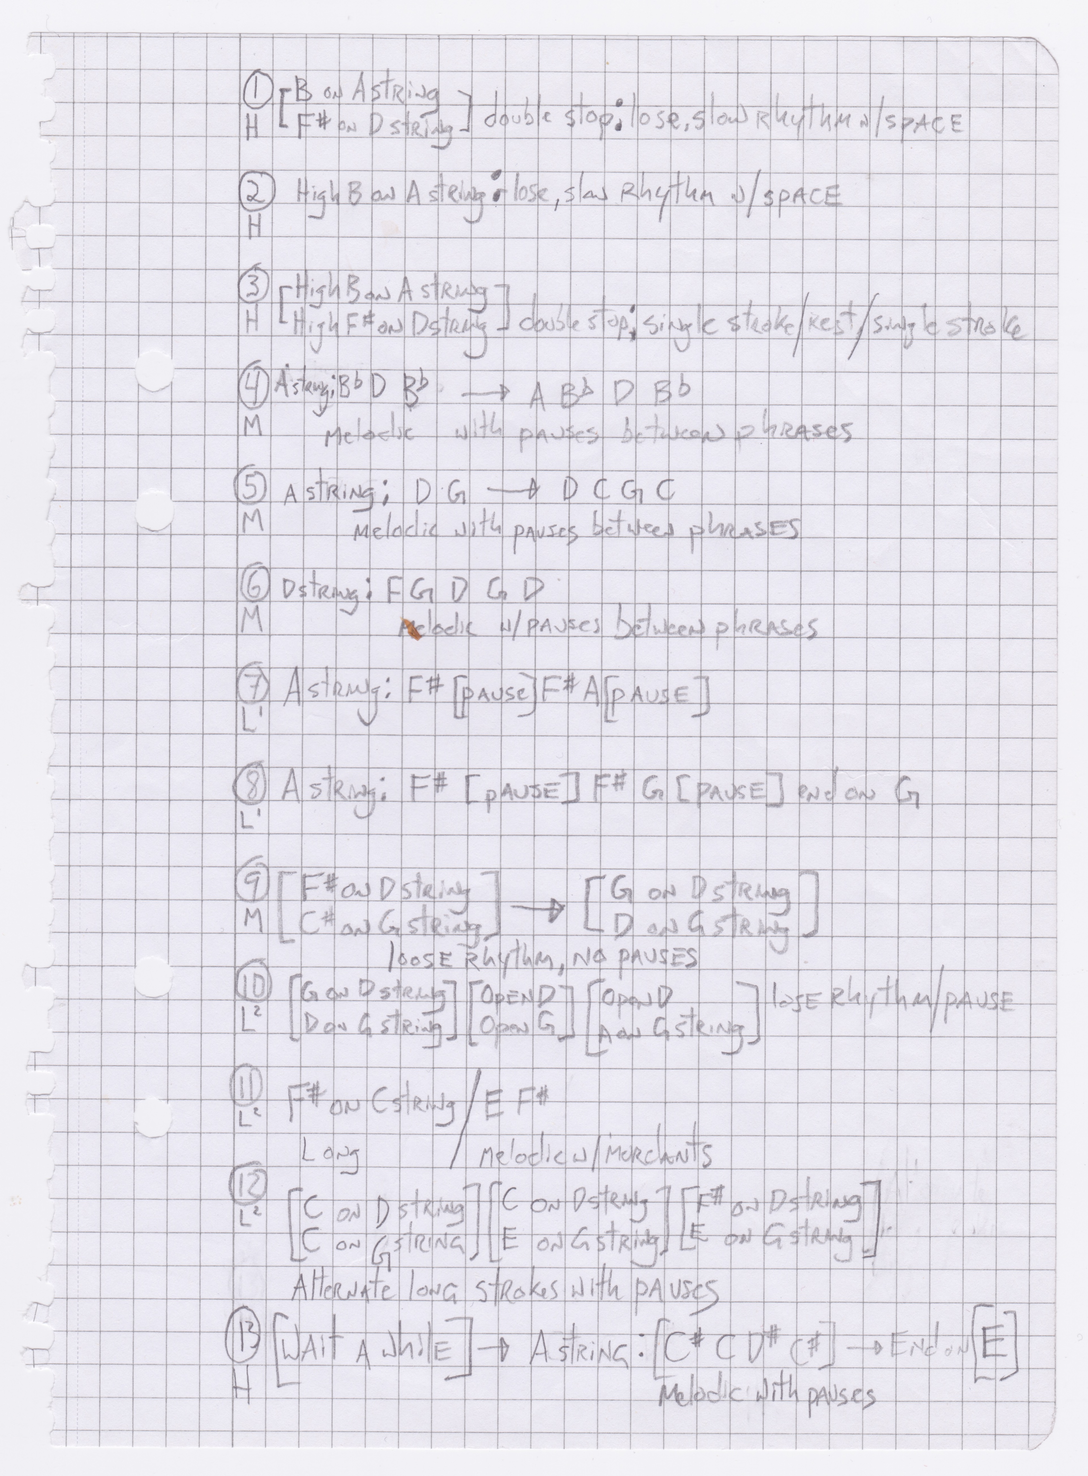 ① B ON A STRING
H F# ON D STRING double stop; lose, slow Rhythm w/SPACE
② High B ON A string: lose, slow Rhythm w/SPACE
H
③ High B ON A string
H High F# ON D string double stop; single stroke/Rest/single stroke
④ A string: Bb D Bb → A Bb D Bb
M Melodic with pauses between phrases
⑤ A string: D G → D C G C
M Melodic with pauses between phrases
⑥ D string: F G D G D
M Melodic w/pauses between phrases
⑦ A string: F# [pause] F# A [pause]
L'
⑧ A string: F# [PAUSE] F# G [PAUSE] end on G
L'
⑨ [F# ON D string] → [G ON D string]
M [C# ON G string] [D ON G string]
loose Rhythm, NO PAUSES
⑩ [G ON D string] [OPEN D] [Open D] lose Rhythm/PAUSE
L² [D ON G string] [Open G] [A on G string]
⑪ F# ON C string / E F#
L² Long / Melodic w/Mordants
⑫ [C ON D string] [C ON D string] [F# ON D string]
L² [C ON G string] [E ON G string] [E ON G string]
Alternate long strokes with pauses
⑬ [Wait A While] → A string: [C# C D# C#] → End on [E]
H Melodic with pauses